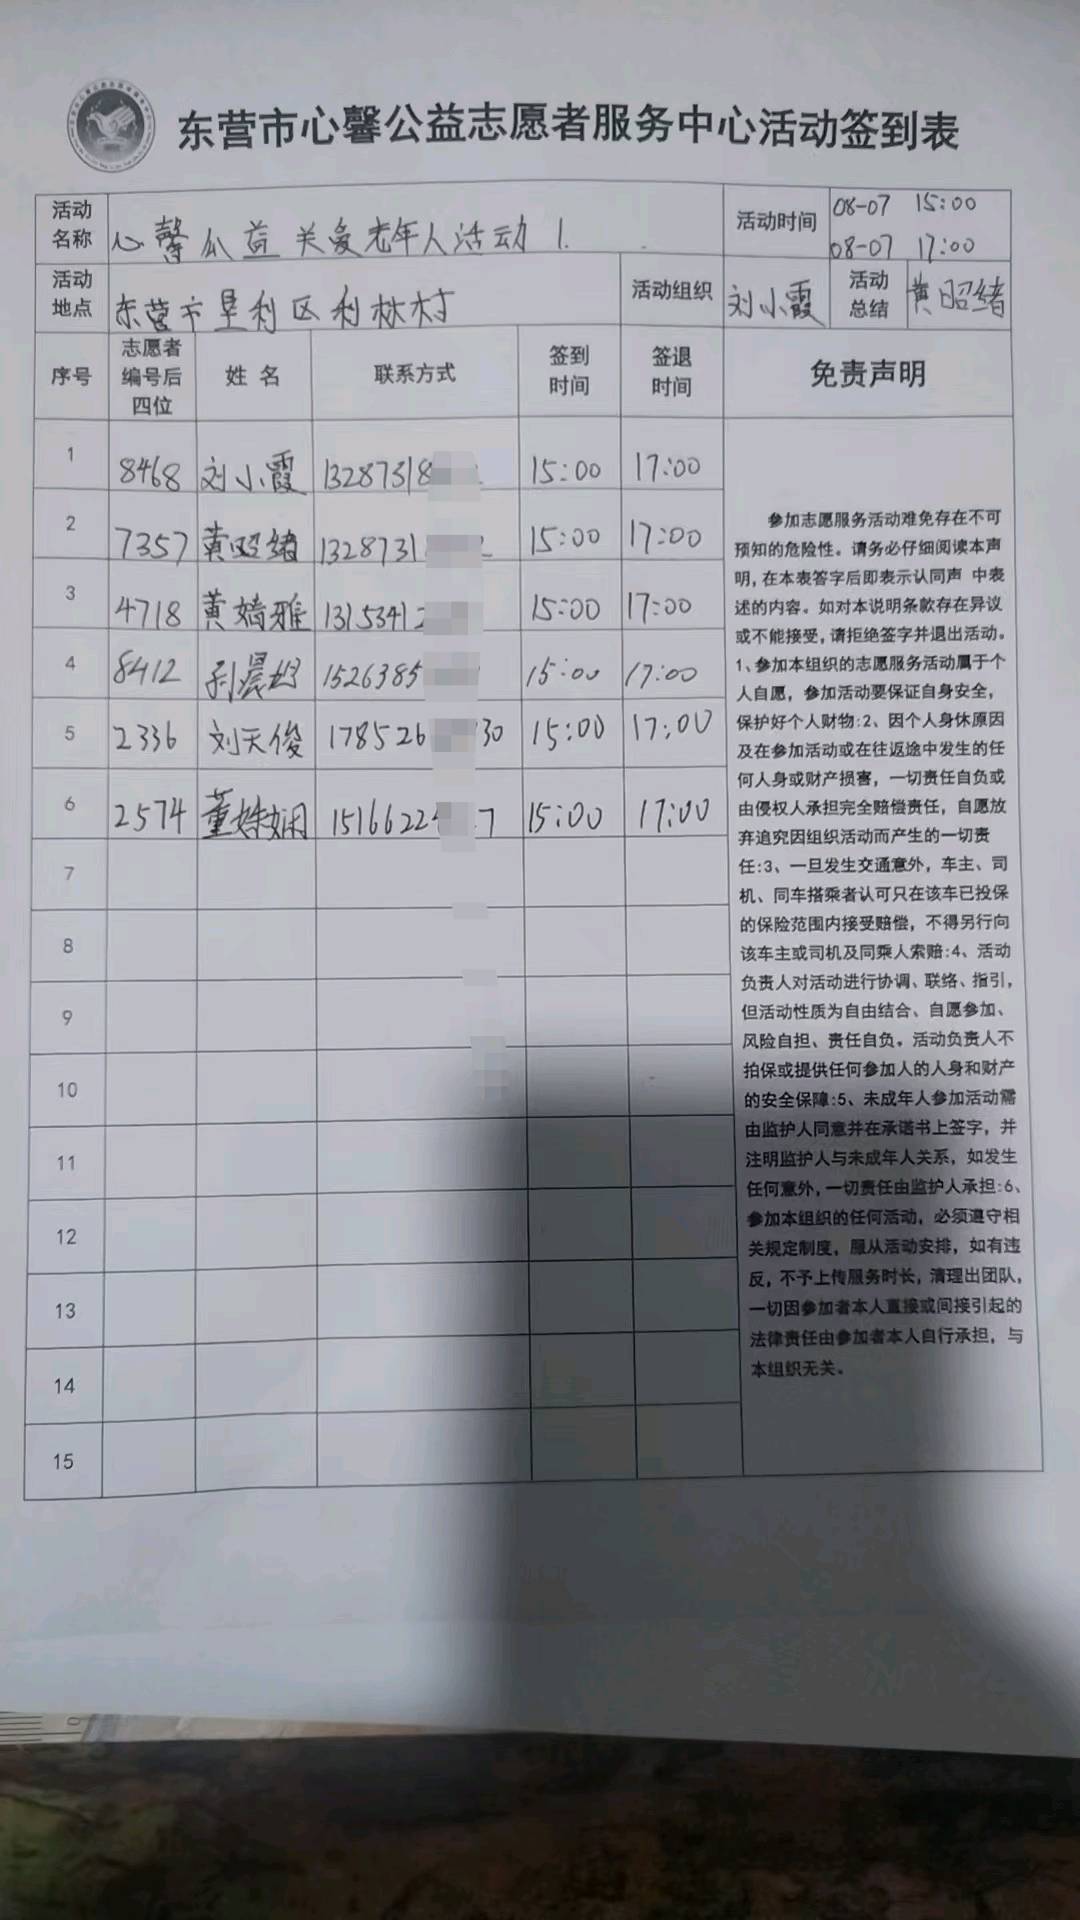 东营市心馨公益志愿者服务中心活动签到表
活动名称 心馨公益关爱老年人活动1. 活动时间 08-07 15:00 08-07 17:00
活动地点 东营市垦利区利林村 活动组织 刘小霞 活动总结 黄昭绪
序号 志愿者编号后四位 姓名 联系方式 签到时间 签退时间 免责声明
1 8468 刘小霞 13287318 15:00 17:00
2 7357 黄昭绪 1328731 15:00 17:00
3 4718 黄婧雅 1315341 15:00 17:00
4 8412 1526385 15:00 17:00
5 2336 刘天俊 178526 30 15:00 17:00
6 2574 董姝娴 1516622 7 15:00 17:00
7
8
9
10
11
12
13
14
15
参加志愿服务活动难免存在不可
预知的危险性。请务必仔细阅读本声
明,在本表答字后即表示认同声 中表
述的内容。如对本说明条款存在异议
或不能接受,请拒绝签字并退出活动。
1、参加本组织的志愿服务活动属于个
人自愿，参加活动要保证自身安全，
保护好个人财物:2、因个人身休原因
及在参加活动或在往返途中发生的任
何人身或财产损害，一切责任自负或
由侵权人承担完全赔偿责任，自愿放
弃追究因组织活动而产生的一切责
任:3、一旦发生交通意外，车主、司
机、同车搭乘者认可只在该车已投保
的保险范围内接受赔偿，不得另行向
该车主或司机及同乘人索赔:4、活动
负责人对活动进行协调、联络、指引，
但活动性质为自由结合、自愿参加、
风险自担、责任自负。活动负责人不
拍保或提供任何参加人的人身和财产
的安全保障:5、未成年人参加活动需
由监护人同意并在承诺书上签字，并
注明监护人与未成年人关系，如发生
任何意外,一切责任由监护人承担:6、
参加本组织的任何活动，必须遵守相
关规定制度，服从活动安排，如有违
反，不予上传服务时长，清理出团队，
一切因参加者本人直接或间接引起的
法律责任由参加者本人自行承担，与
本组织无关。